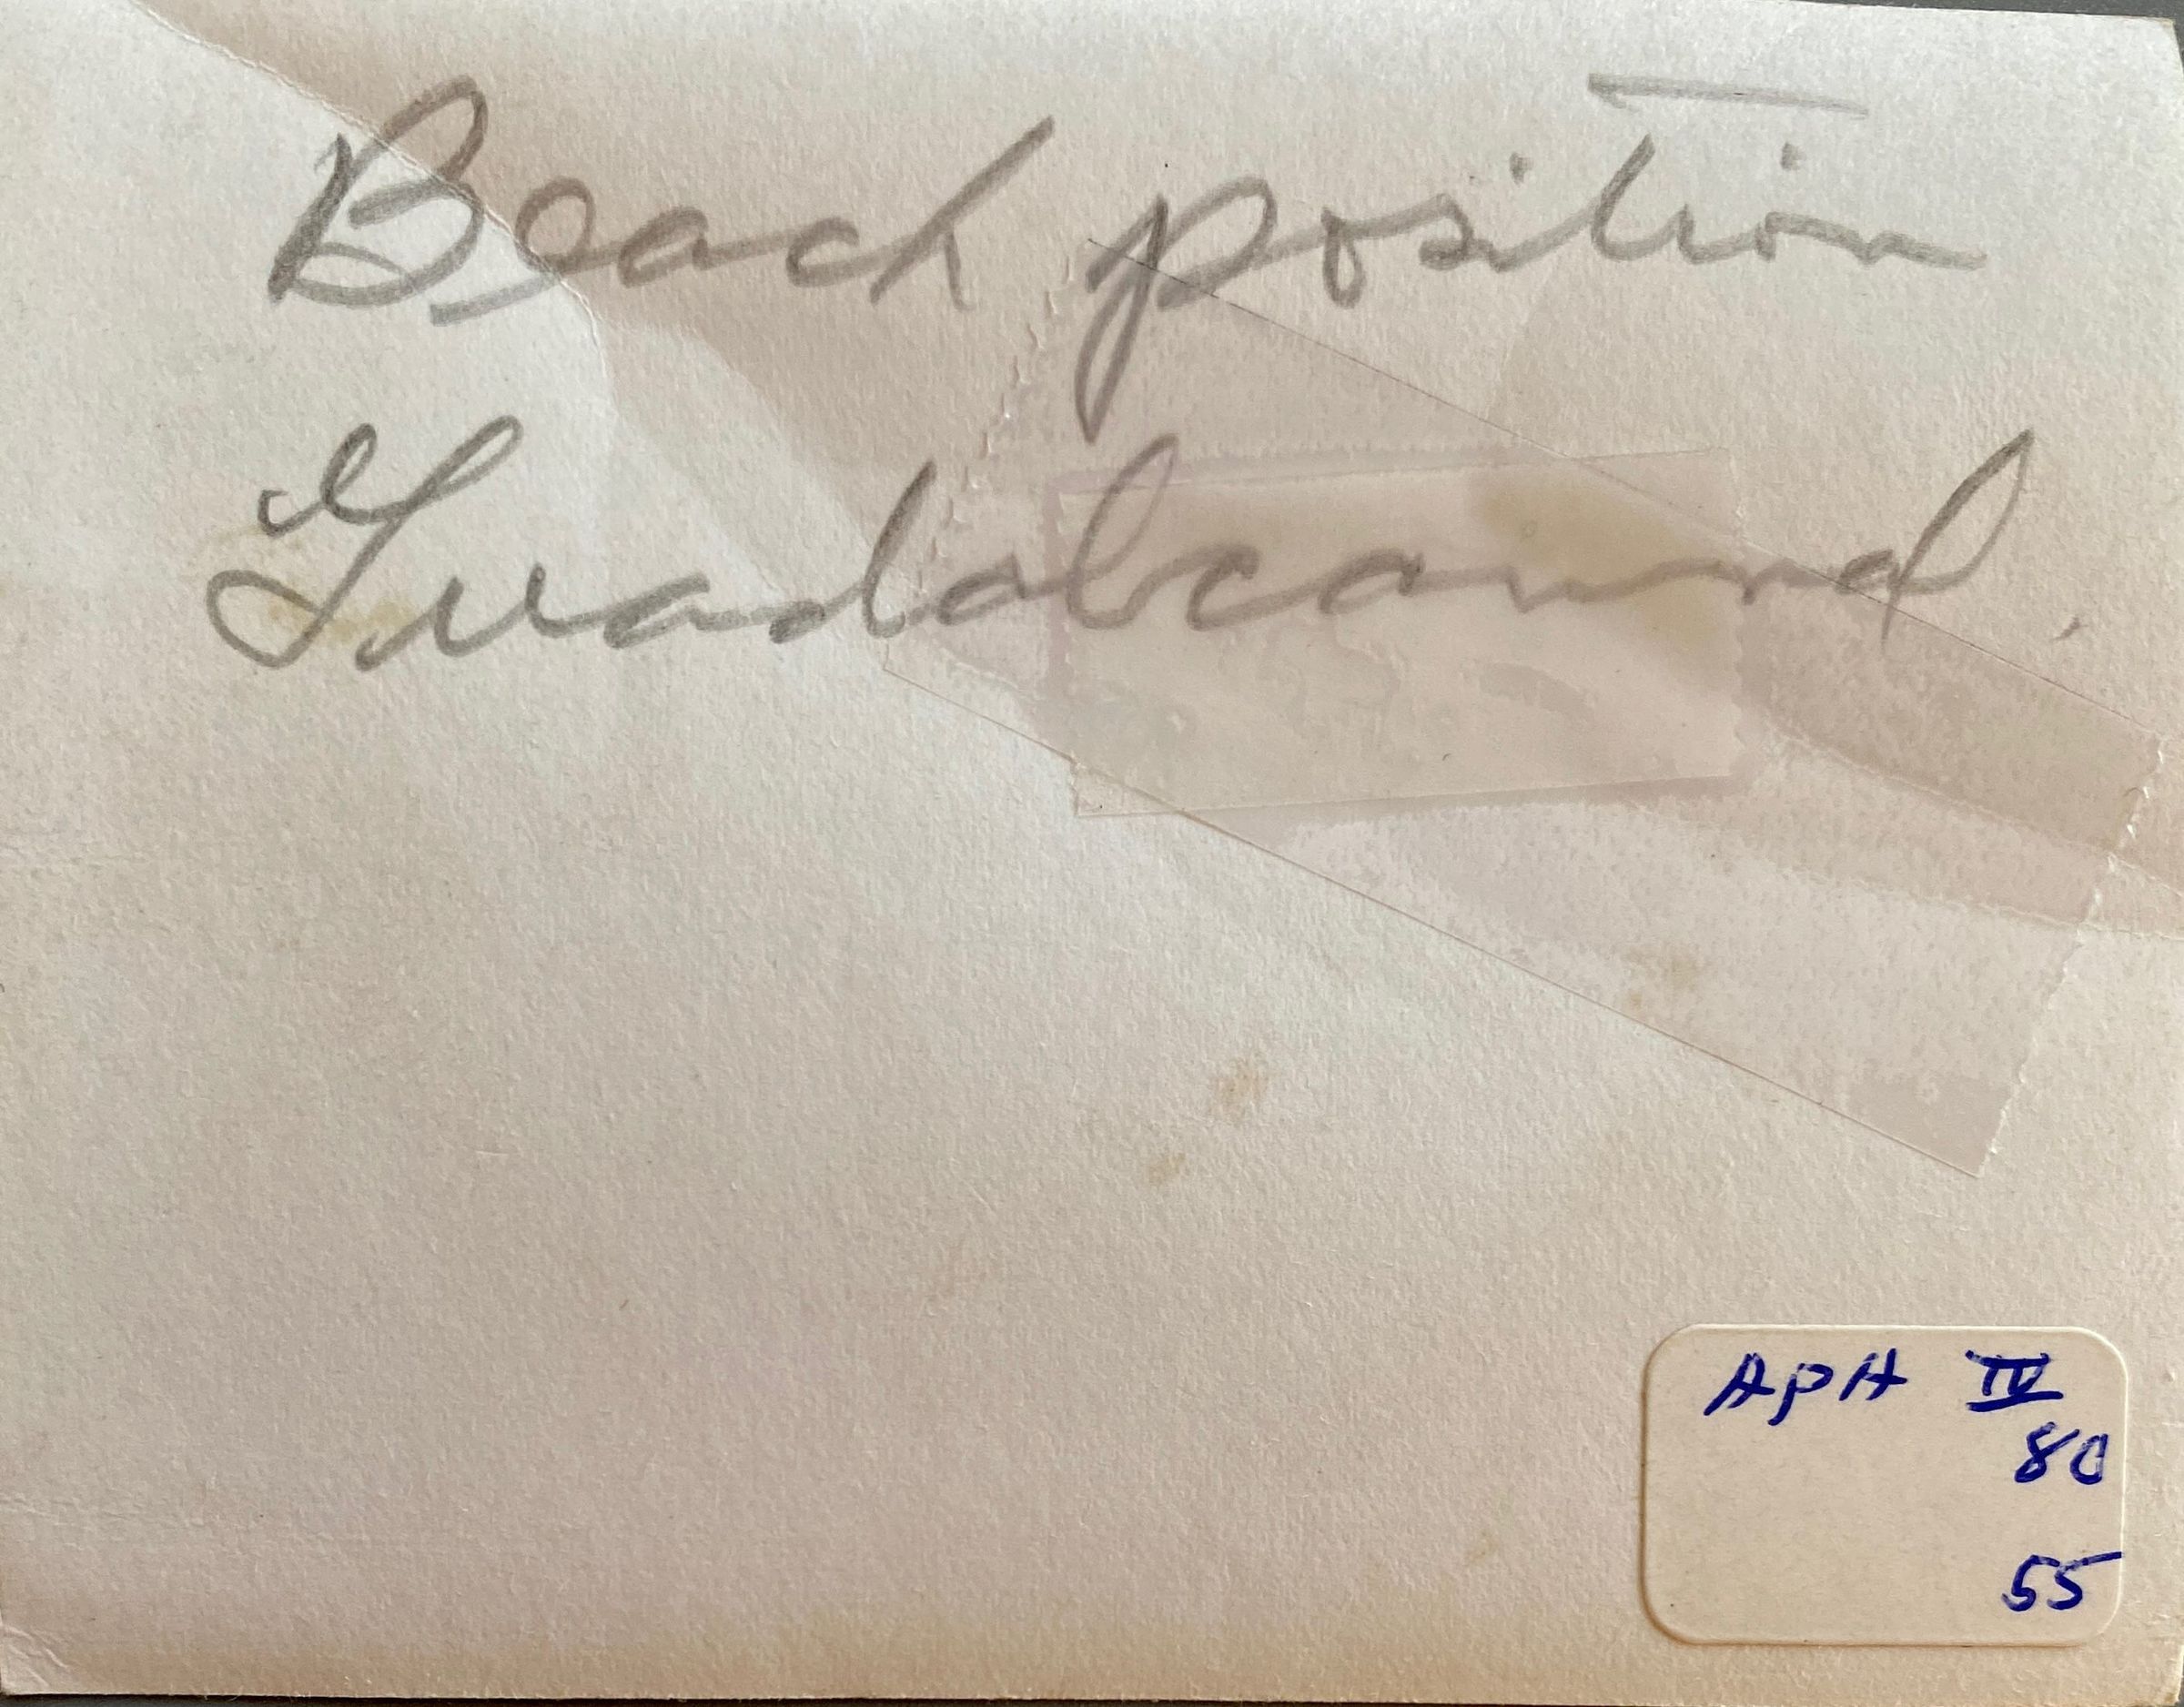 Beach position
Guadalcannal.
APH IV
80
55